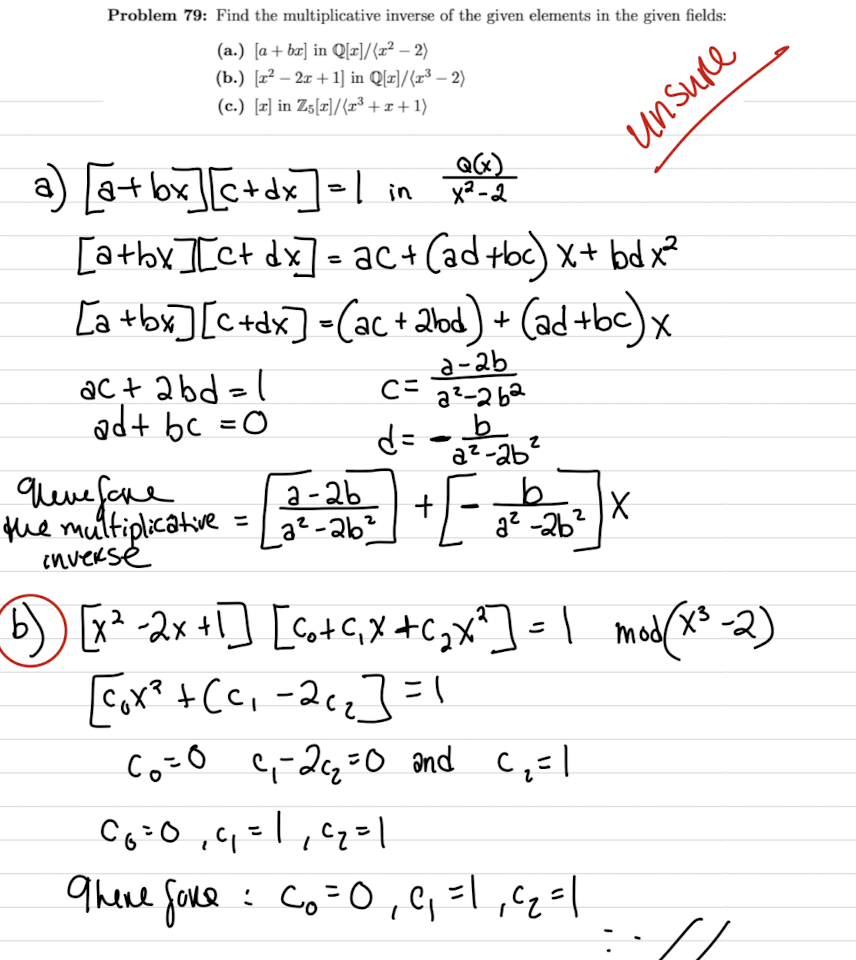 Problem 79: Find the multiplicative inverse of the given elements in the given fields:
(a.) [a + bx] in ℚ[x]/⟨x² − 2⟩
(b.) [x² − 2x + 1] in ℚ[x]/⟨x³ − 2⟩
(c.) [x] in ℤ₅[x]/⟨x³ + x + 1⟩
unsure
a) [a+bx][c+dx]=1 in Q(x)/x²-2
[a+bx][c+dx] = ac+(ad+bc)x+bdx²
[a+bx][c+dx] =(ac+2bd)+(ad+bc)x
ac+2bd=1 c= a-2b/a²-2b²
ad+bc=0 d= - b/a²-2b²
Therefore
the multiplicative = [a-2b/a²-2b²]+[- b/a²-2b²]x
inverse
b) [x²-2x+1] [c₀+c₁x+c₂x²] = 1 mod(x³-2)
[c₀x³+(c₁-2c₂]=1
c₀=0 c₁-2c₂=0 and c₂=1
c₀=0, c₁=1, c₂=1
Therefore : c₀=0, c₁=1, c₂=1